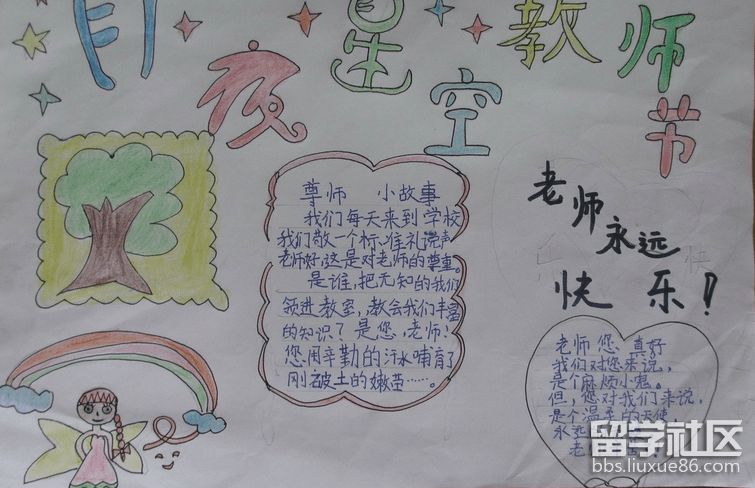 月夜星空教师节
尊师 小故事
我们每天来到学校
我们敬一个标准礼说声
老师好,这是对老师的尊重。
是谁,把无知的我们
领进教室,教会我们丰富
的知识?是您,老师!
您用辛勤的汗水哺育了
刚破土的嫩苗……。
老师永远
快乐!
老师您,真好
我们对您来说,
是个麻烦小鬼。
但,您对我们来说,
是个温柔的天使,
永远
老
留学社区
bbs.liuxue86.com